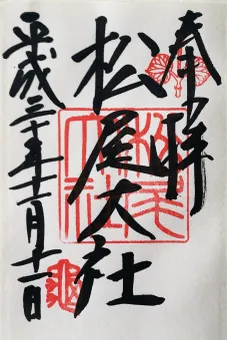 奉拝
松尾大社
平成三十年十一月十一日